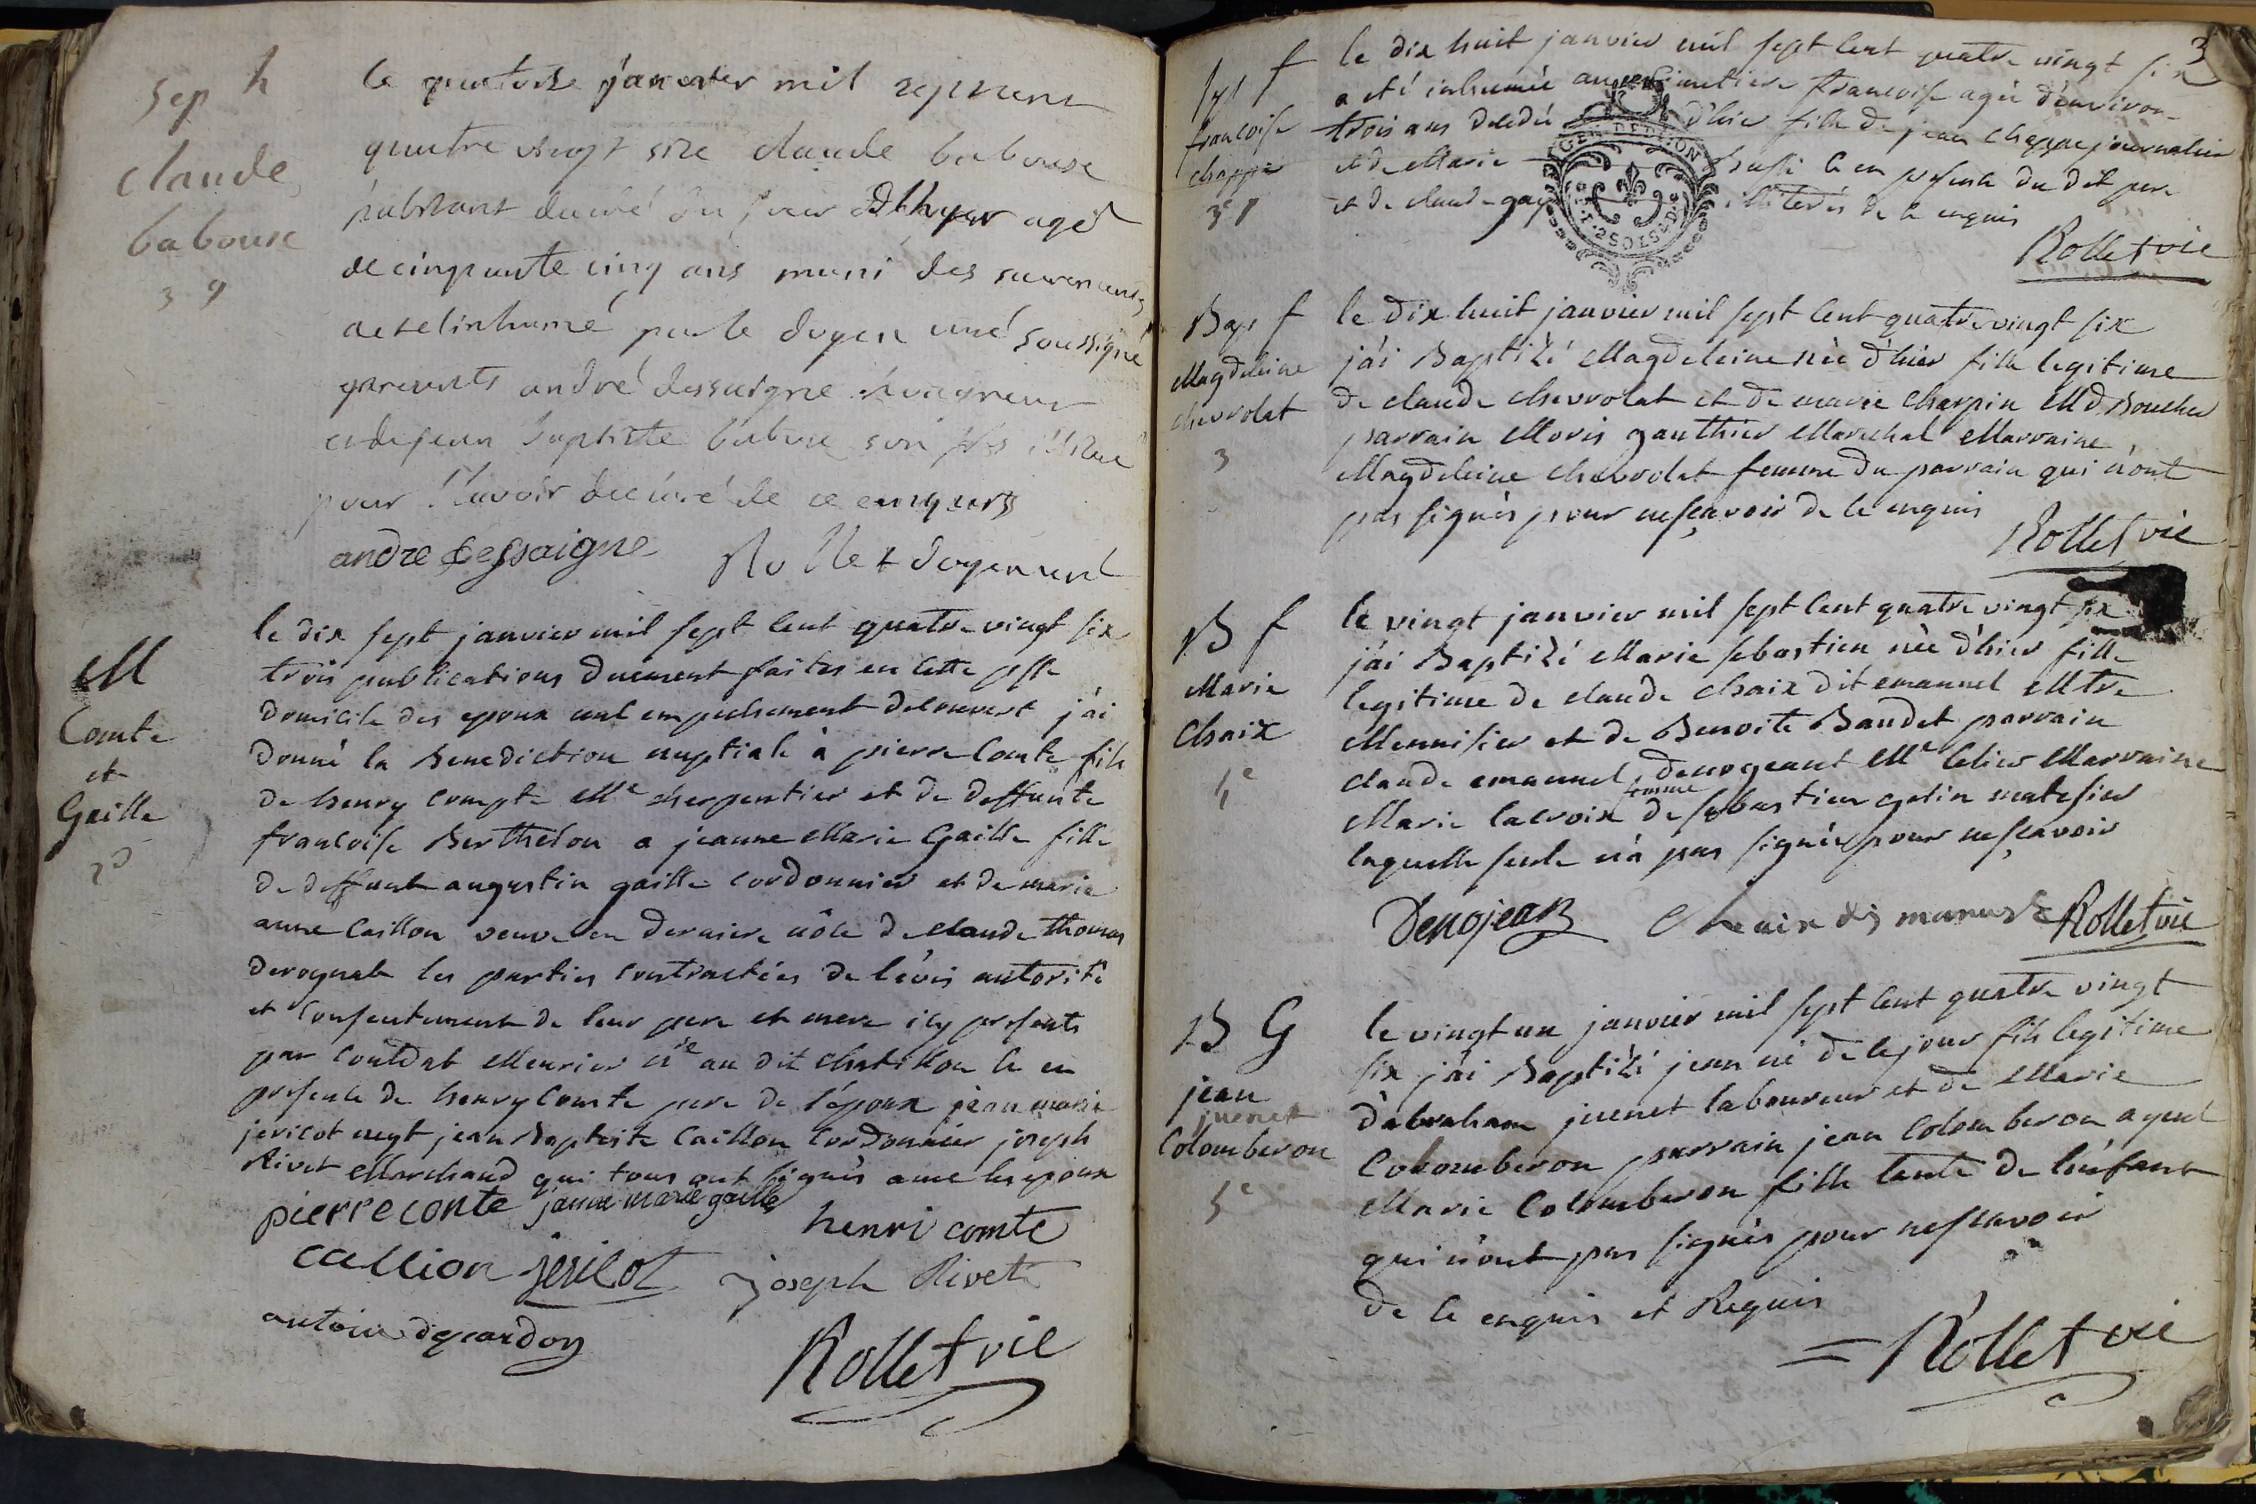 Sep h
claude
babouse
3 9
le quatorze janvier mil sept cent
quatre vingt six claude babouse
habitant decedé du jour d'hyer agé
de cinquante cinq ans muni des sacrements
a eté inhumé par le doyen curé soussigné
presents andré dessaigne
et de jean baptiste babouse son fils
pour l'avoir declaré de ce enquis
andre dessaigne Rollet doyen curé
M
Comte
et
Gaille
2d
le dix sept janvier mil sept cent quatre vingt six
trois publications duement faites en cette psse
domicile des epoux nul empechement decouvert j'ai
donné la Benediction nuptiale à pierre Comte fils
de henry compte Me cherpentier et de deffunte
francoise Berthelon a jeanne Marie Gaille fille
de deffunt augustin gaille cordonnier et de marie
anne Caillon veuve en derniere nôce de claude thomas
les parties contractées de l'avis autorité
et consentement de leur pere et mere icy presents
par contrat Meurier nre au dit chatillon ce en
presence de henry Comte pere de l'époux jean marie
jericot negt jean Baptiste Caillon Cordonnier joseph
Rivet Marchand qui tous ont signés avec les epoux
pierre conte janne marie gaille henri comte
callion jericot joseph Rivet
antoine deguardon
Rollet vic
3
Sep f
francoise
chappe
3e
le dix huit janvier mil sept cent quatre vingt six
a été inhumée au cimetiere francoise agée d'environ
trois ans decedée d'hier fille de jean chappe journalier
et de Marie ce en presence du dit pere
et de claude gay illiterés de ce enquis
Rollet vic
Bap f
Magdeleine
chevrolat
3
le dix huit janvier mil sept cent quatre vingt six
j'ai Baptizé Magdeleine née d'hier fille legitime
de claude chevrolat et de marie charpin Md Boucher
parrain Moris gauthier Marechal Marraine
Magdeleine chevrolat femme du parrain qui n'ont
pas signés pour ne sçavoir de ce enquis
Rollet vic
B f
Marie
Chaix
4e
le vingt janvier mil sept cent quatre vingt six
j'ai Baptizé Marie sebastien née d'hier fille
legitime de claude chaix dit emanuel Mtre
Mennisier et de Benoite Baudet parrain
claude emanuel Me Marraine
Marie lacroix femme de sebastien
laquelle seule n'a pas signée pour ne sçavoir
Denojean Rollet vic
B G
jean
juenet
Colomberon
5e
le vingt un janvier mil sept cent quatre vingt
six j'ai Baptizé jean né de ce jour fils legitime
d'abraham juenet laboureur et de Marie
Colomberon parrain jean Colomberon ayeul
Marie Colomberon fille tante de l'enfant
qui n'ont pas signés pour ne sçavoir
de ce enquis et Requis
Rollet vic